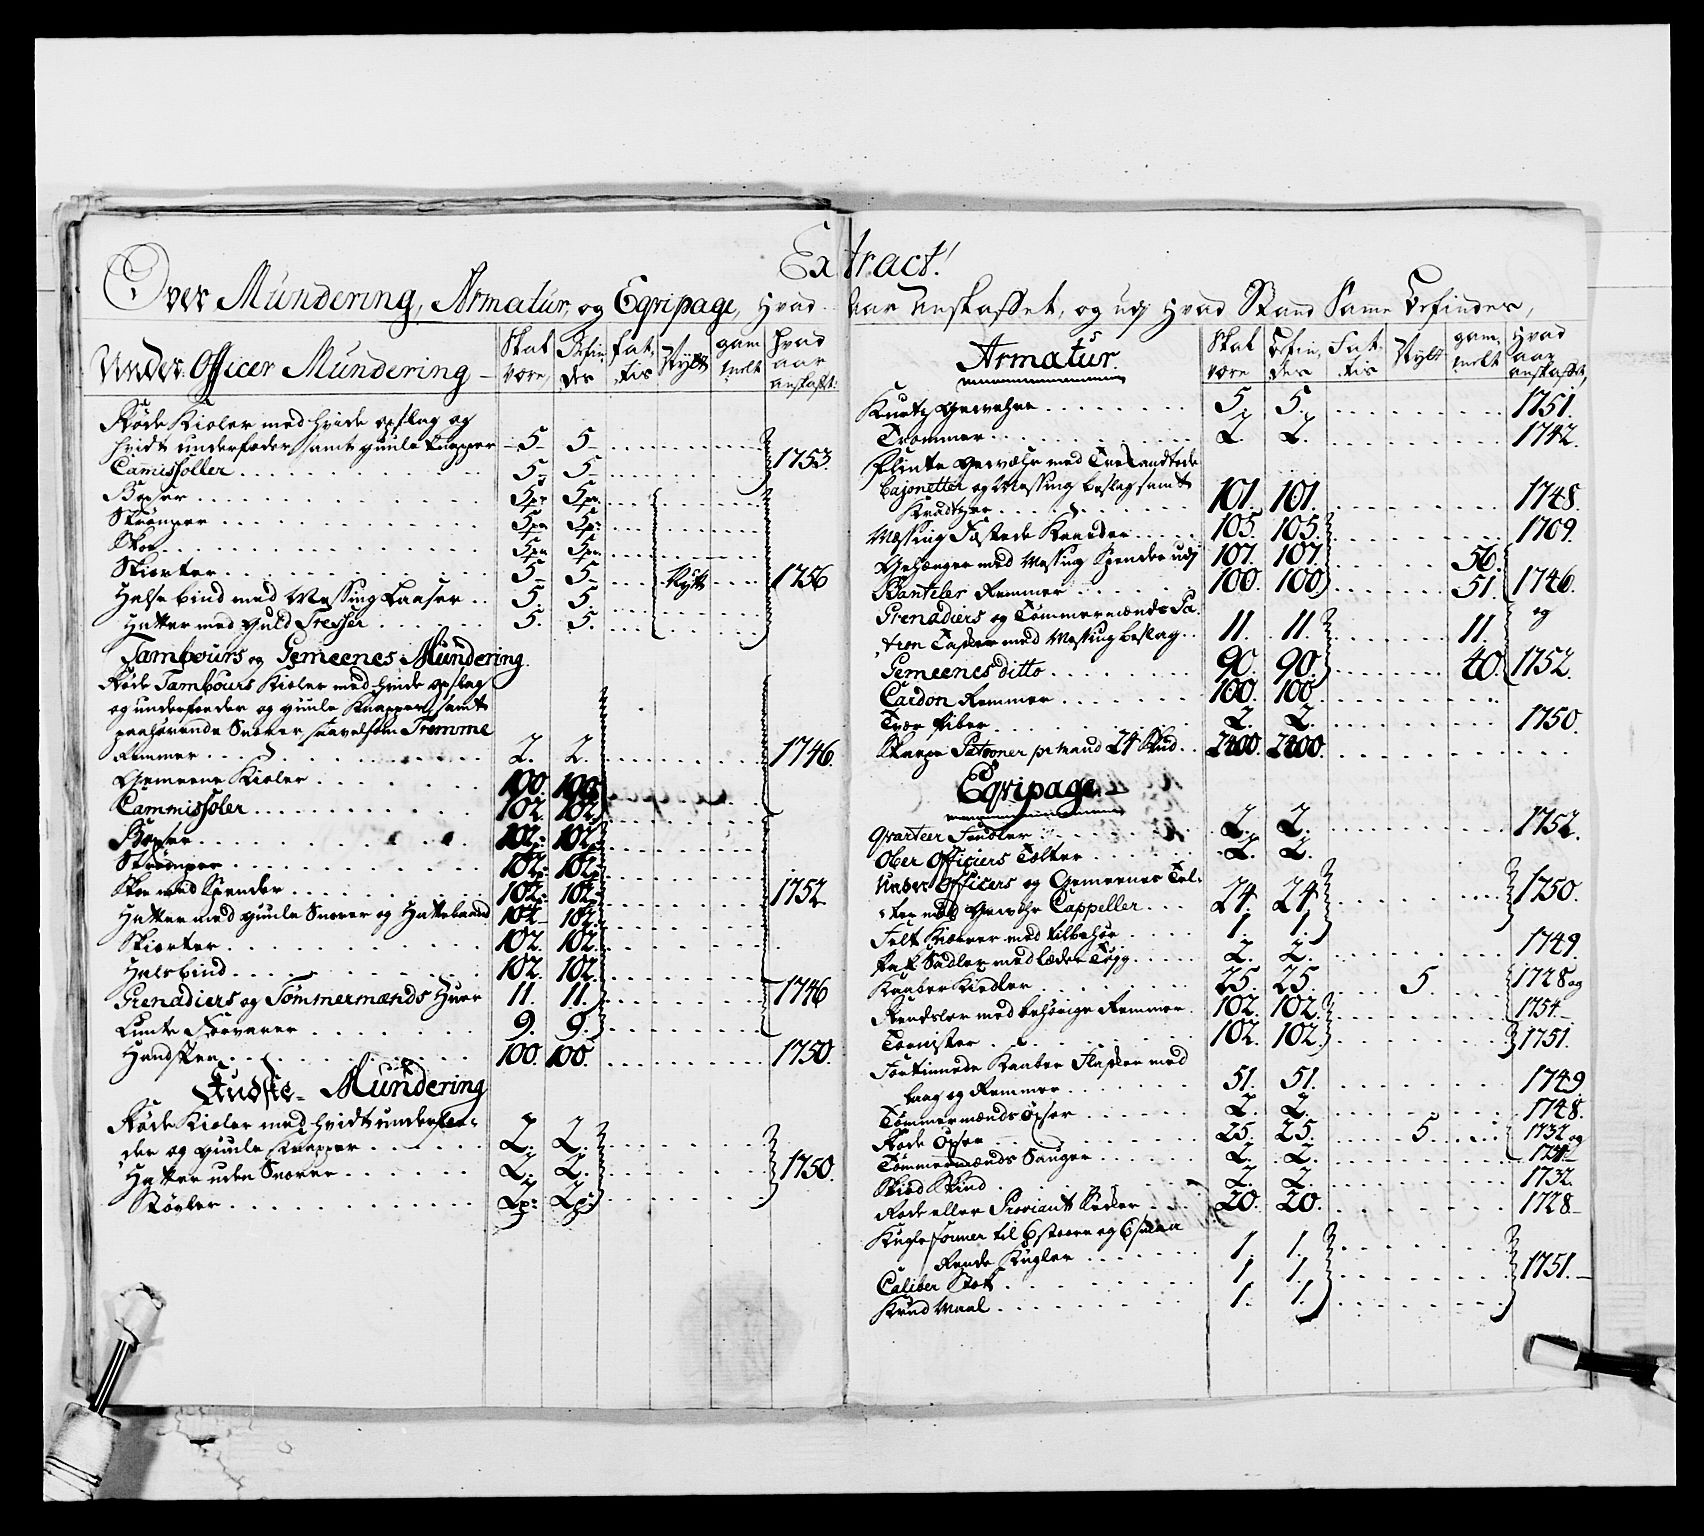 Extract.
Over Mundering, Armatur, og Eqvipage, Hvad Aar Anskaffet, og udj Hvad Stand Same Befindes,
Under Officer Mundering
Skal være Befindes Fattis Nytt gammelt Hvad aar anskafft:
Røde Kioler med hvide opslag og
hvidt underfoder, samt guule knapper 5 5
Camissoller 5 5 1753.
Boxser 5pr 5pr
Strømper 5pr 5pr
Skoe 5pr 5pr
Skiorter 5 5 Nytt 1756
Halsbind med Messing Laaser 5 5
Hatter med Guld Tresser 5. 5.
Tambours og Gemeenes Mundering.
Røde Tambours Kioler med hvide opslag
og underfoeder og guule Knapper, samt
paahørende Snorer saavelsom Tromme
Remmer 2. 2. 1746.
Gemeene Kioler 100. 100.
Cammisoler 102. 102.
Boxser 102. 102.
Strømper 102. 102.
Skoe med Spender 102. 102. 1752
Hatter med guule Snorer og Hattebaand 102 102.
Skiorter 102. 102.
Halsbind 102. 102.
Grenadiers og Tømmermænds Huer 11. 11. 1746
Lunte Forvarer 9. 9.
Handsker 100. 100. 1750.
Kudske Mundering
Røde Kioler med hvidt underfoe-
der og guule Knapper 2. 2.
Hatter uden Snorer 2. 2. 1750.
Støvler 2p: 2p:
Armatur.
Skal være Befindes Fattis Nytt gammelt Hvad aar anskaffet,
Kortz Gewehre 5. 5. 1751.
Trommer 2. 2. 1742.
Flinte Gewæhr med Trekandtede
Bajonetter og Messing beslag samt
Krudtzer 101. 101. 1748.
Messing Fæstede Kaarder 105. 105. 1709.
Gehænger med Messing Spender udj 107. 107. 56.
Banteler Remmer 100. 100. 51. 1746.
Grenadiers og Tømmermænds Pa- og
tron Tasker med Messing beslag 11. 11. 11.
Gemeenes ditto 90. 90. 40. 1752.
Cardon Remmer 100. 100.
Tvær Piber 2. 2. 1750.
Skarpe Patroner pr Mand 24 Skud 2400. 2400.
Eqvipage
Qvarteer Fendler 2. 2. 1752.
Ober Officiers Tælter 2. 2.
Under Officers og Gemeenes Tel-
ter med Gewehr Cappeller 24. 24 1750.
Felt Kiærrer med tilbehør 1. 1.
Pak Sadler med læder Tøyg 2. 2. 1749.
Kaaber Kiedler 25. 25. 5 1728 og
Rendsler med behørige Remmer 102. 102. 1754
Tornister 102. 102. 1751.
Fortinnede Kaaber Flasker med
laag og Remmer 51. 51. 1749
Tømmermænds Øxser 2. 2. 1748.
Røde Øxser 25. 25. 5. 1732 og
Tømmermænds Sauger 2. 2.
Skiød Skind 2. 2. 1732.
Rode eller Proviant Sæcker 20. 20. 1728
Kugleformer til
Rende Kugler 1. 1.
Caliber Stok 1. 1. 1751.
Krud Maal 1. 1.